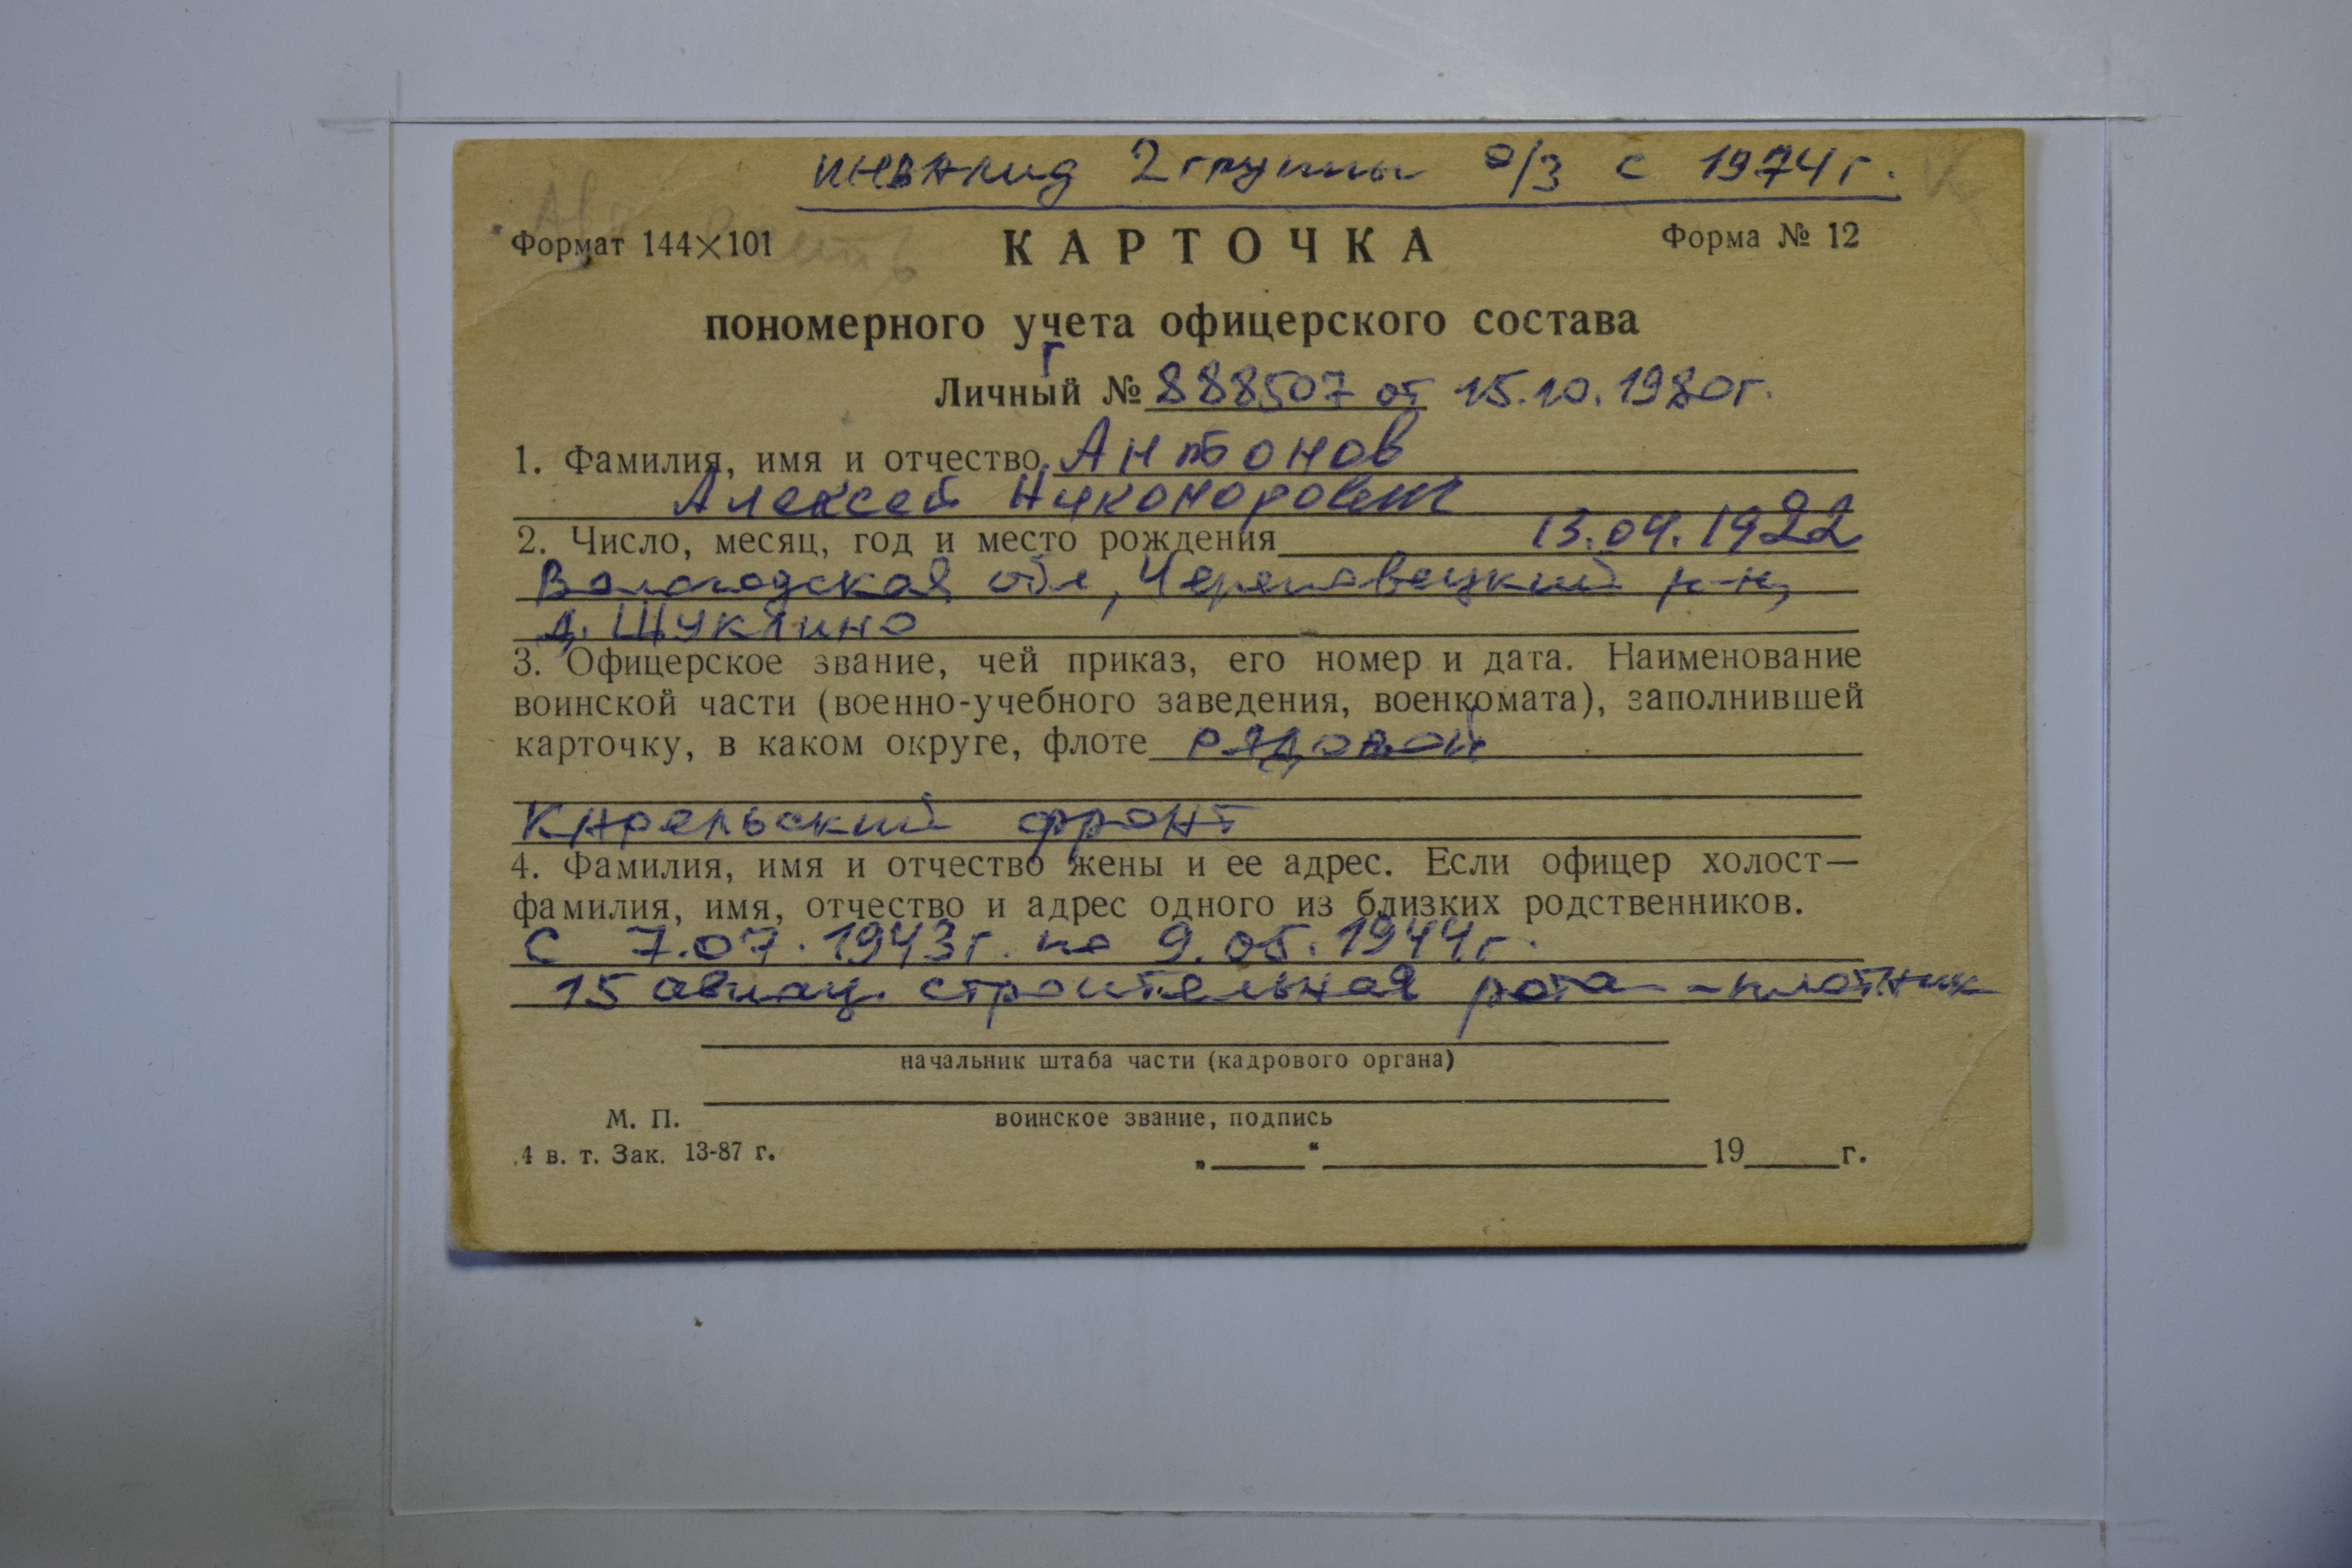 инвалид 2 группы о/з с 1974 г.
Формат 144×101
КАРТОЧКА
Форма № 12
пономерного учета офицерского состава
Г
Личный № 888507 от 15.10.1980г.
1. Фамилия, имя и отчество Антонов
Алексей Никонорович
2. Число, месяц, год и место рождения 13.04.1922
Вологодская обл, Череповецкий р-н,
д. Шуклино
3. Офицерское звание, чей приказ, его номер и дата. Наименование
воинской части (военно-учебного заведения, военкомата), заполнившей
карточку, в каком округе, флоте рядовой
Карельский фронт
4. Фамилия, имя и отчество жены и ее адрес. Если офицер холост—
фамилия, имя, отчество и адрес одного из близких родственников.
С 7.07.1943г. по 9.05.1944г.
15 авиац. строительная рота - плотник
начальник штаба части (кадрового органа)
М. П.
воинское звание, подпись
4 в. т. Зак. 13-87 г.
„ “ 19 г.